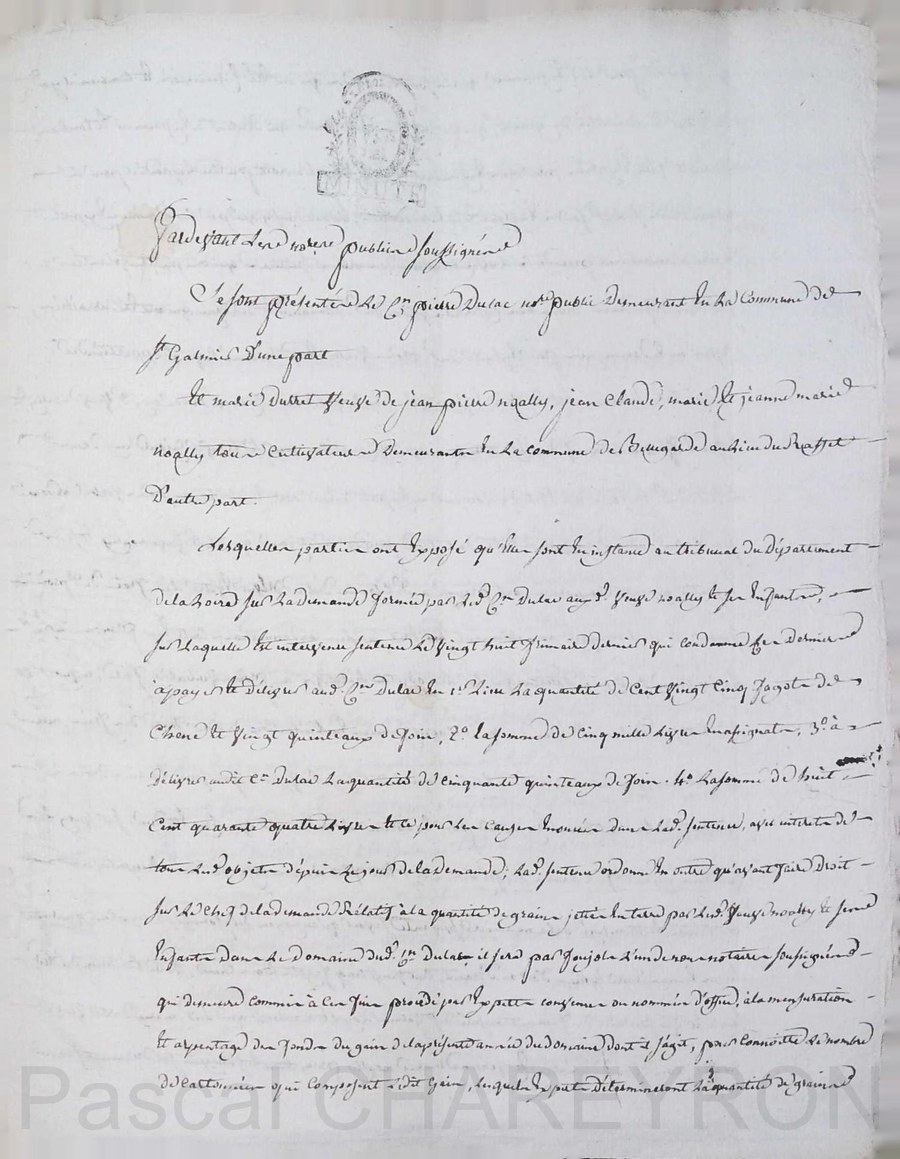 Pardevant Les nores publics soussignés
Se sont présentés Le Cen pierre Dulac nore public Demeurant En La Commune de
St Galmier D'une part
Et marie Durret Veuve de jean pierre noally, jean Claude, marie Et jeanne marie
noally tous Cultivateurs Demeurants En La commune de au Lieu du
D'autre part.
Lesquelles parties ont Exposé qu'Elles sont En instance au tribunal du Département
de la Loire sur La demande formée par Led. Cen Dulac aux d. Veuve noally Et ses Enfants,
sur Laquelle Est intervenue sentence Le Vingt huit frimaire dernier qui condamne Ces Derniers
à payer Et délivrer aud. Cen Dulac En 1er Lieu La quantité de Cent Vingt Cinq fagots de
Chêne Et Vingt quinteaux de foin, 2o. La somme de Cinq mille Livres En assignats, 3o. à
Délivrer audit Cen Dulac La quantité de Cinquante quinteaux de foin. 4o. La somme de huit
Cent quarante quatre Livres Et ce pour Les Causes Enoncées dans Lad. sentence, avec intérêts de
tous Lesd. objets dépuis Le jour de La demande; Lad. sentence ordonne En outre qu'avant faire Droit
sur Le Chef de La demande Rélatif à la quantité de grains jettés En terre par Lesd. Veuve noally Et ses
Enfants Dans Le Domaine dud. Cen Dulac, il sera par L'un de nous notaires soussignés
qui demeure Commis à Ces fins procédé par Experts convenus ou nommés d'office, à la mensuration
Et arpentage des fonds du gain de la présente année du domaine dont il s'agit, pour Connoitre Le nombre
de Cartonnées qui Composent Ledit gain, Lesquels Experts Détermineront La quantité de grains
Pascal CHAREYRON